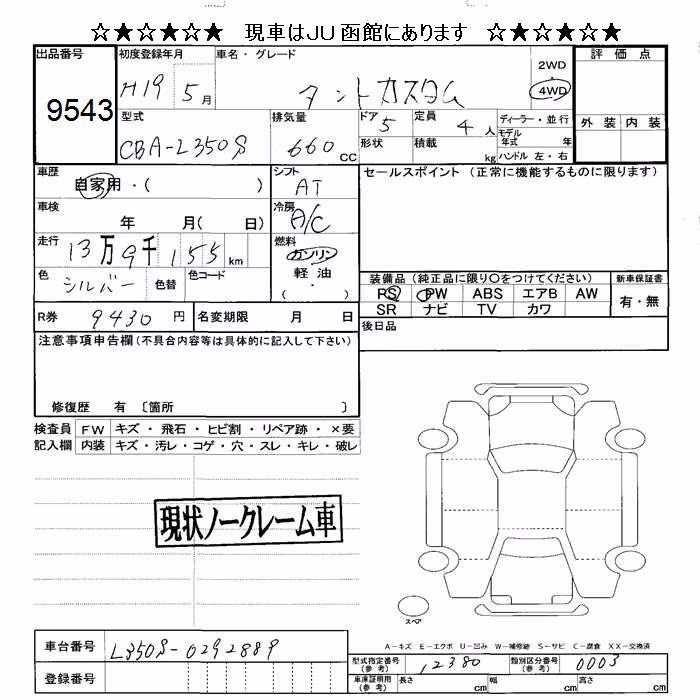 ☆★☆★☆★ 現車はJU函館にあります ☆★☆★☆★
出品番号 初度登録年月 車名・グレード 評価点
9543 H19 5月 タントカスタム 2WD・4WD
型式 排気量 ドア 定員 ディーラー・並行 外装 内装
CBA-L350S 660CC 5 4人 モデル年式 年
形状 積載 kg ハンドル 左・右
車歴 シフト セールスポイント(正常に機能するものに限ります)
自家用・( ) AT
車検 冷房
年 月( 日) A/C
走行 燃料
13万9千155km ガソリン
色 カラーコード 軽油
シルバー 色替 ( ・ )
装備品(純正品に限り○をつけてください) 新車保証書
PS PW ABS エアB AW 有・無
SR ナビ TV カワ
R券 9430円 名変期限 月 日 後日品
注意事項申告欄(不具合内容等は具体的に記入して下さい)
修復歴 有 〔箇所 〕
検査員 FW キズ・飛石・ヒビ割・リペア跡・×要
記入欄 内装 キズ・汚レ・コゲ・穴・スレ・キレ・破レ
現状ノークレーム車
スペア
A-キズ E-エクボ U-凹み W-補修跡 S-サビ C-腐食 XX-交換済
車台番号 L350S-0292889 型式指定番号(参考) 12380 類別区分番号(参考) 0003
登録番号 車庫証明用(参考) 長さ cm 幅 cm 高さ cm